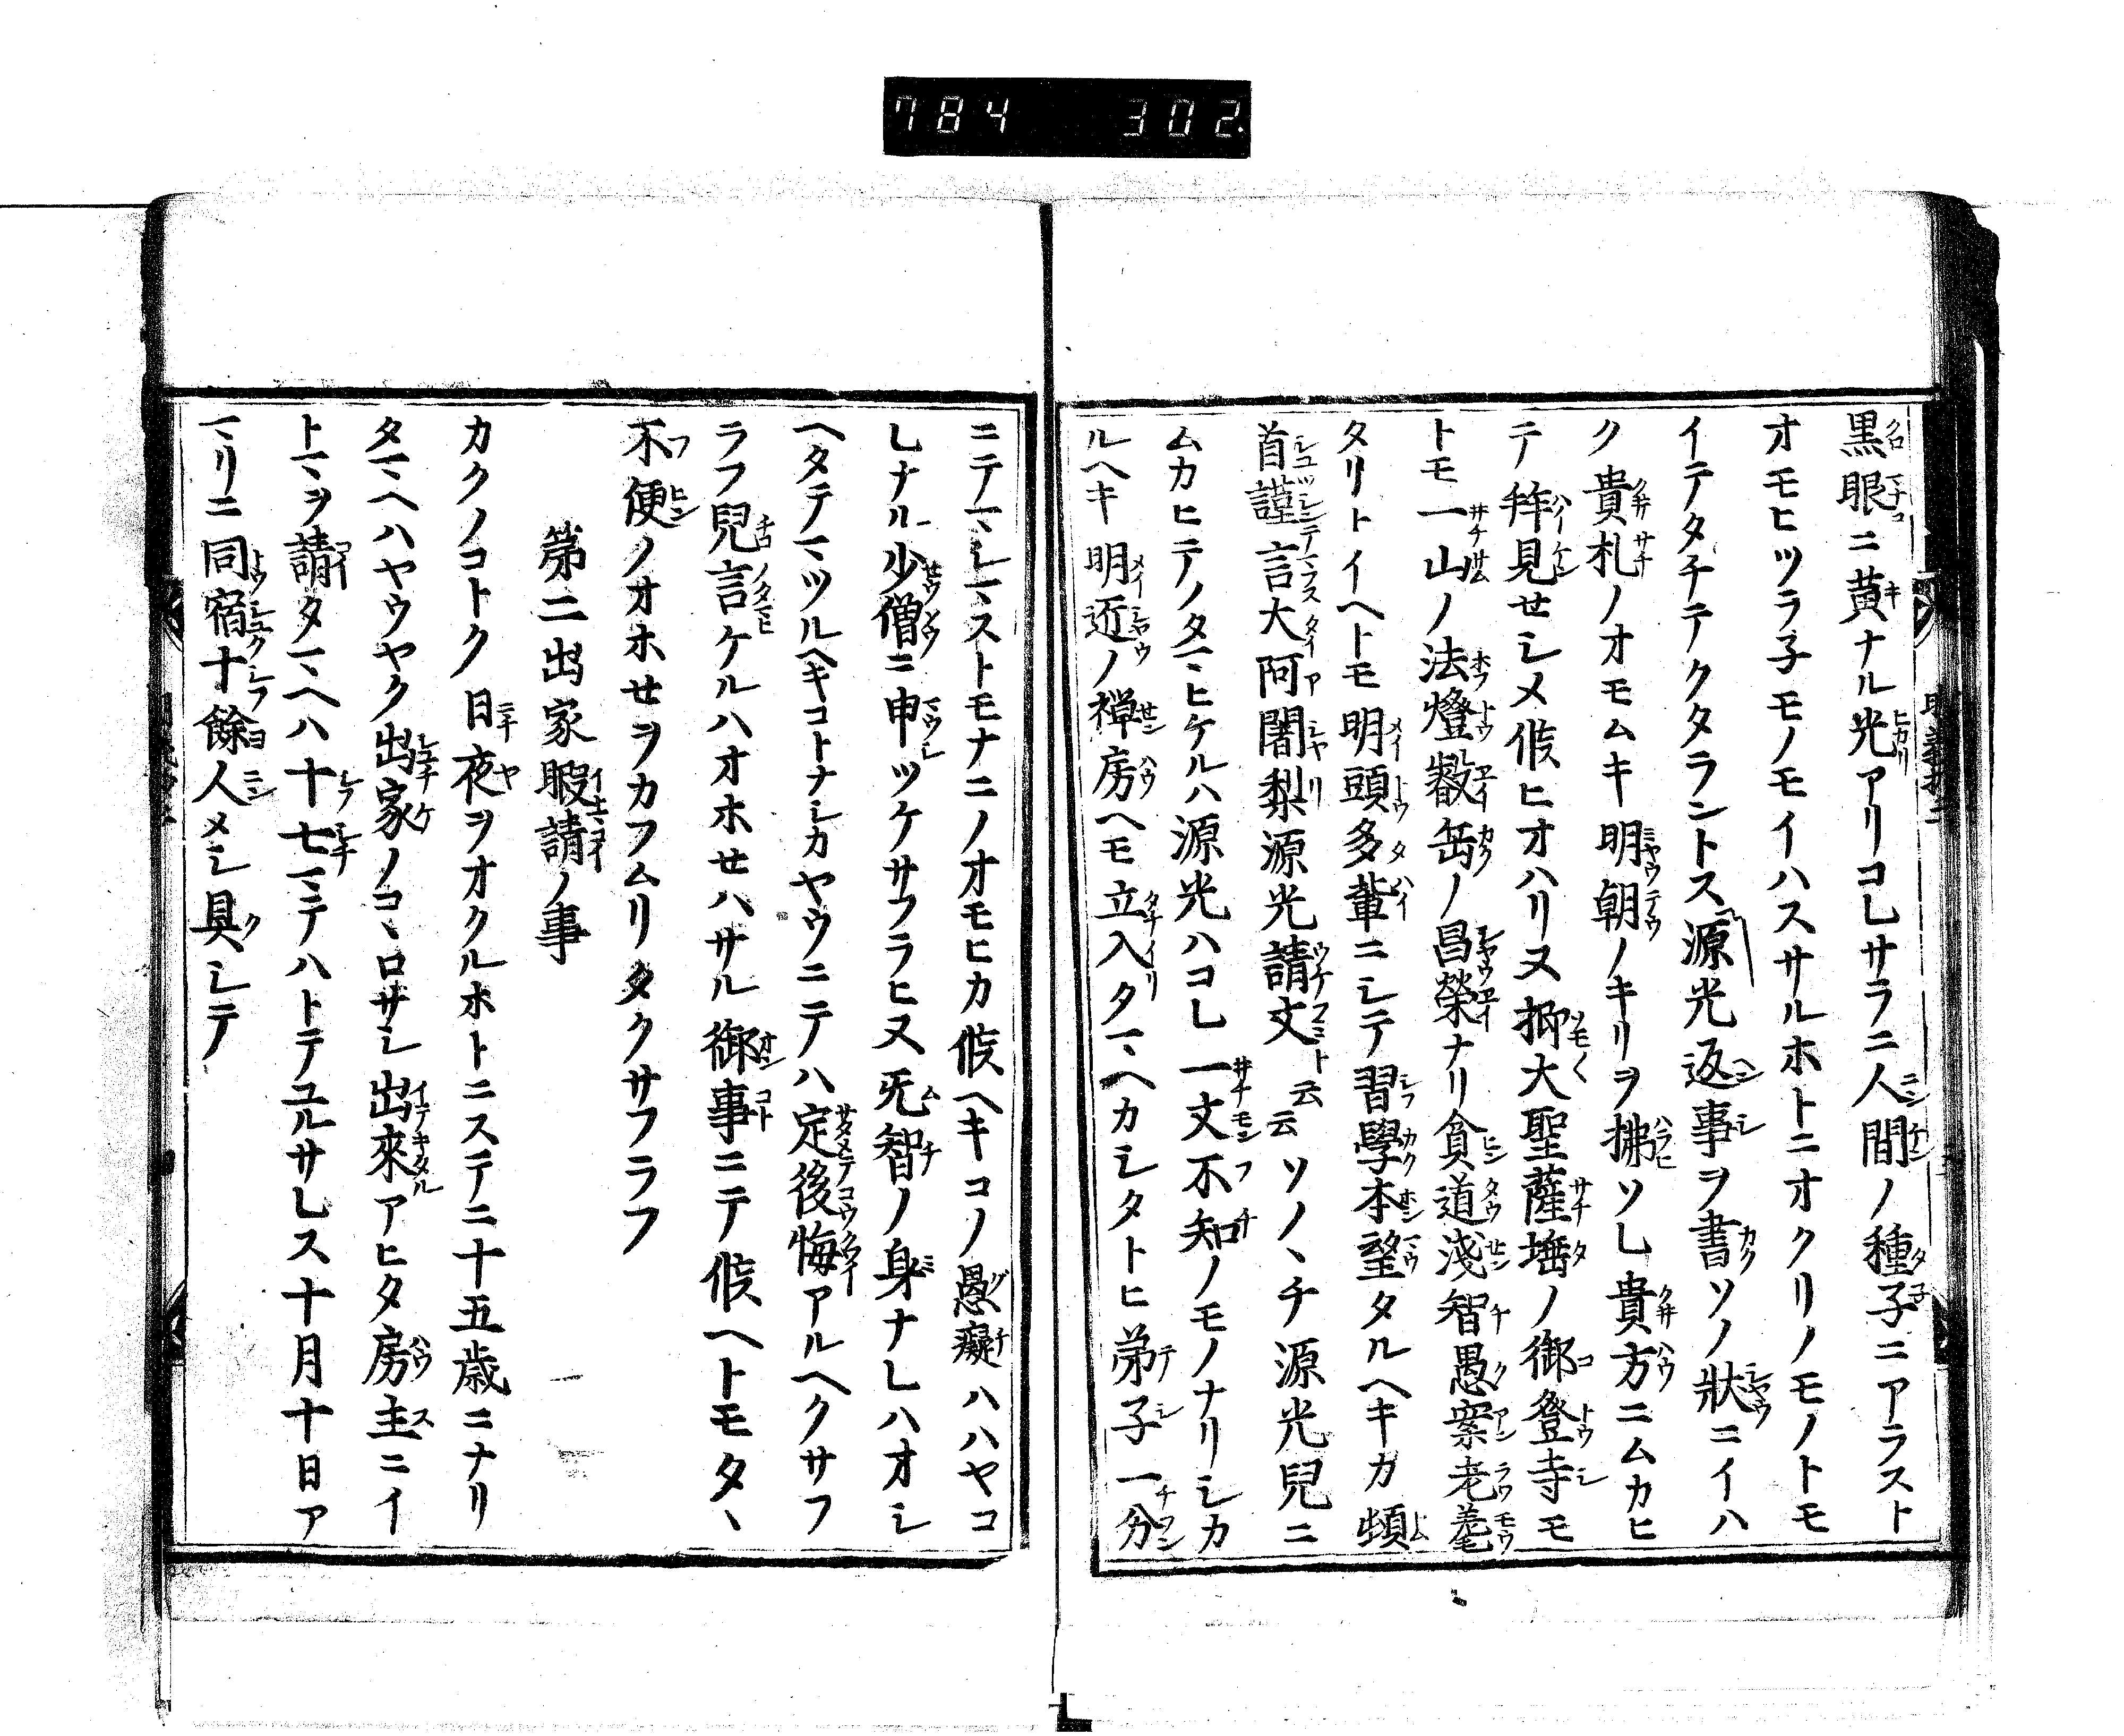 784 302
黒眼ニ黄ナル光アリコレサラニ人間ノ種子ニアラスト
オモヒツラ子モノモイハスサルホトニオクリノモノトモ
イテタチテクタラントス源光返事ヲ書ソノ狀ニイハ
ク貴札ノオモムキ明朝ノキリヲ拂ソレ貴方ニムカヒ
テ拜見せシメ候ヒオハリヌ抑大聖薩埵ノ御登寺モ
トモ一山ノ法燈叡岳ノ昌榮ナリ貧道淺智愚案老耄
タリトイヘトモ明頭多輩ニシテ習學本望タルヘキカ頓
首謹言大阿闍梨源光請文ト云云ソノヽチ源光兒ニ
ムカヒテノタマヒケルハ源光ハコレ一文不知ノモノナリシカ
ルヘキ明近ノ禅房ヘモ立入タマヘカシタトヒ弟子一分
ニテマシマストモナニノオモヒカ候ヘキコノ愚癡ハハヤコ
レナル少僧ニ申ツケサフラヒヌ旡智ノ身ナレハオシ
ヘタテマツルヘキコトナシカヤウニテハ定後悔アルヘクサフ
ラフ兒言ケルハオホせハサル御事ニテ候ヘトモタヽ
不便ノオホせヲカフムリタクサフラフ
第二出家暇請ノ事
カクノコトク日夜ヲオクルホトニステニ十五歳ニナリ
タマヘハヤウヤク出家ノコヽロサシ出來アヒタ房主ニイ
トマヲ請タマヘハ十七マテハトテユルサレス十月十日ア
マリニ同宿十餘人メシ具シテ